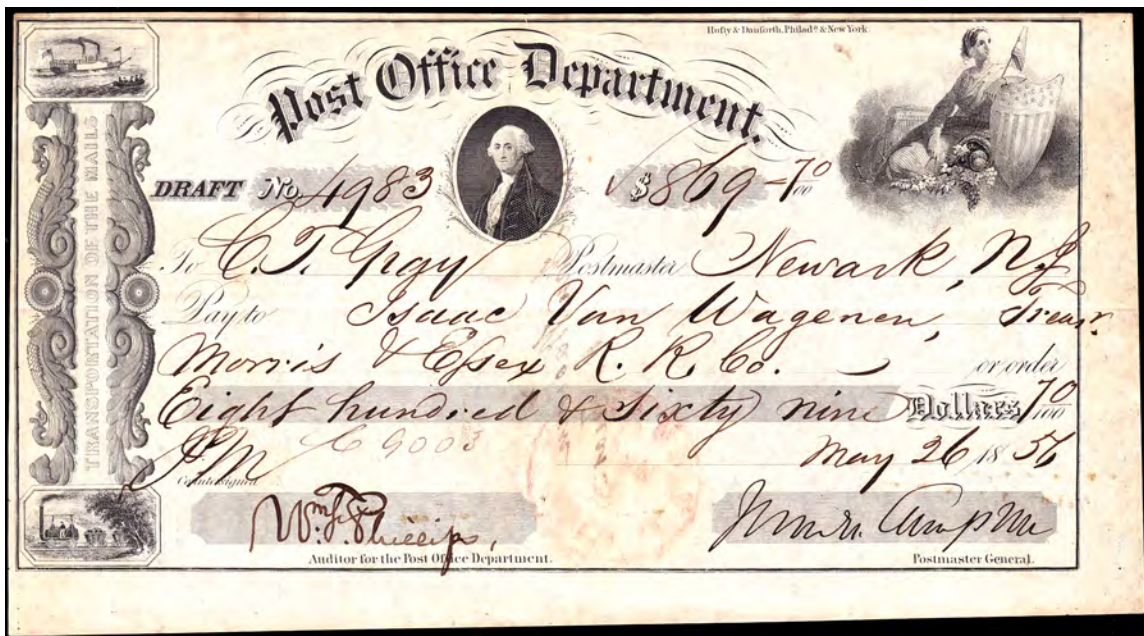 Hufty & Danforth, Philadᵃ & New York.
Post Office Department.
TRANSPORTATION OF THE MAILS
DRAFT No. 4983 $869-70/00
To C. T. Gray Postmaster Newark, N.J.
Pay to Isaac Van Wagenen, Treasr.
Morris & Essex R. R. Co. or order
Eight hundred & sixty nine Dollars 70/100
C 9003
May 26, 1856
Countersigned
Wm. F. Phillips,
Auditor for the Post Office Department. Postmaster General.